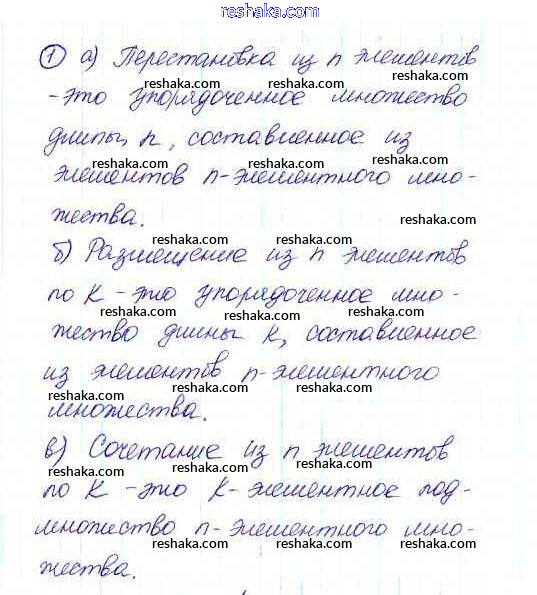 www.reshaka.com
1 а) Перестановка из n элементов
reshaka.com reshaka.com
- это упорядоченное множество
reshaka.com reshaka.com
длины n, составленное из
reshaka.com reshaka.com
элементов n-элементного мно-
reshaka.com
жества.
reshaka.com reshaka.com
б) Размещение из n элементов
reshaka.com reshaka.com
по К - это упорядоченное мно-
reshaka.com reshaka.com
жество длины к, составленное
reshaka.com
из элементов n-элементного
reshaka.com reshaka.com
множества.
reshaka.com
в) Сочетание из n элементов
reshaka.com reshaka.com reshaka.com
по К - это К-элементное под-
reshaka.com
множество n-элементного мно-
reshaka.com reshaka.com
жества.
reshaka.com